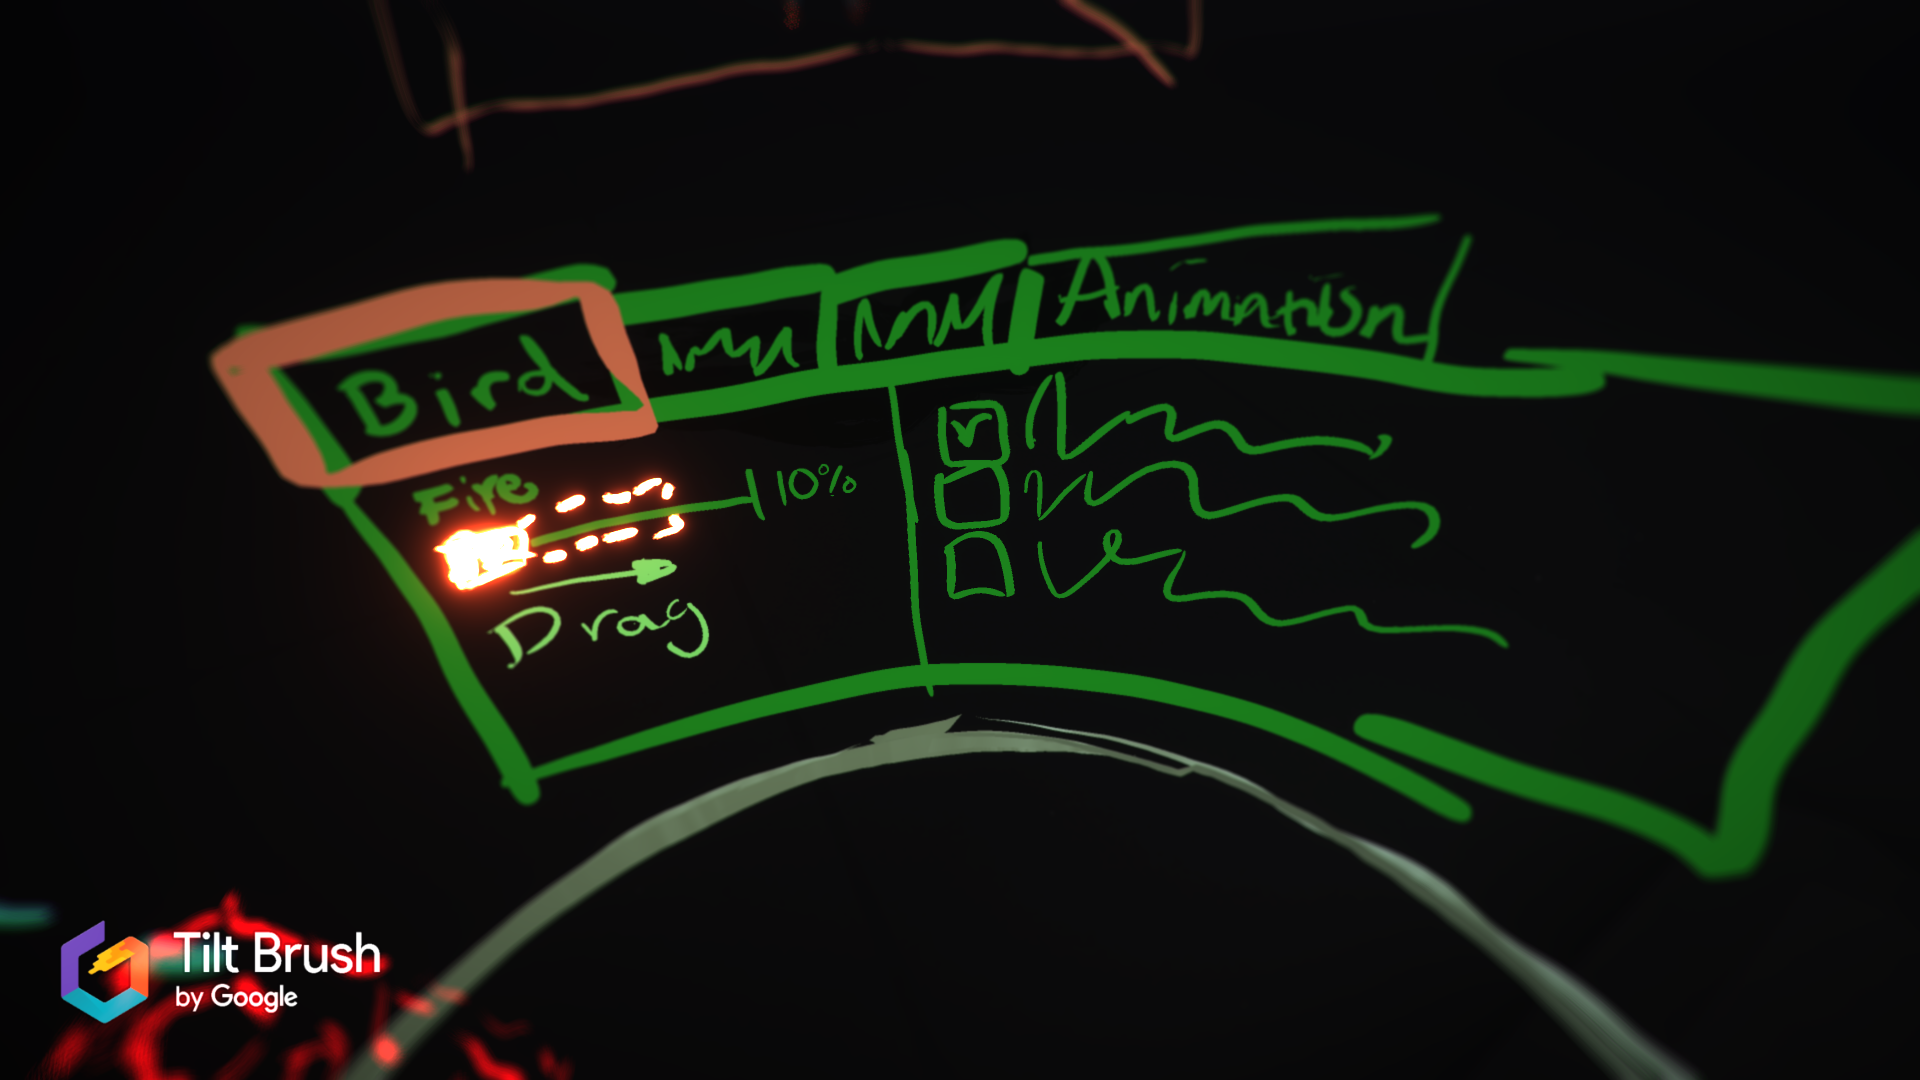 Bird
Animation
Fire
10%
Drag
Tilt Brush
by Google